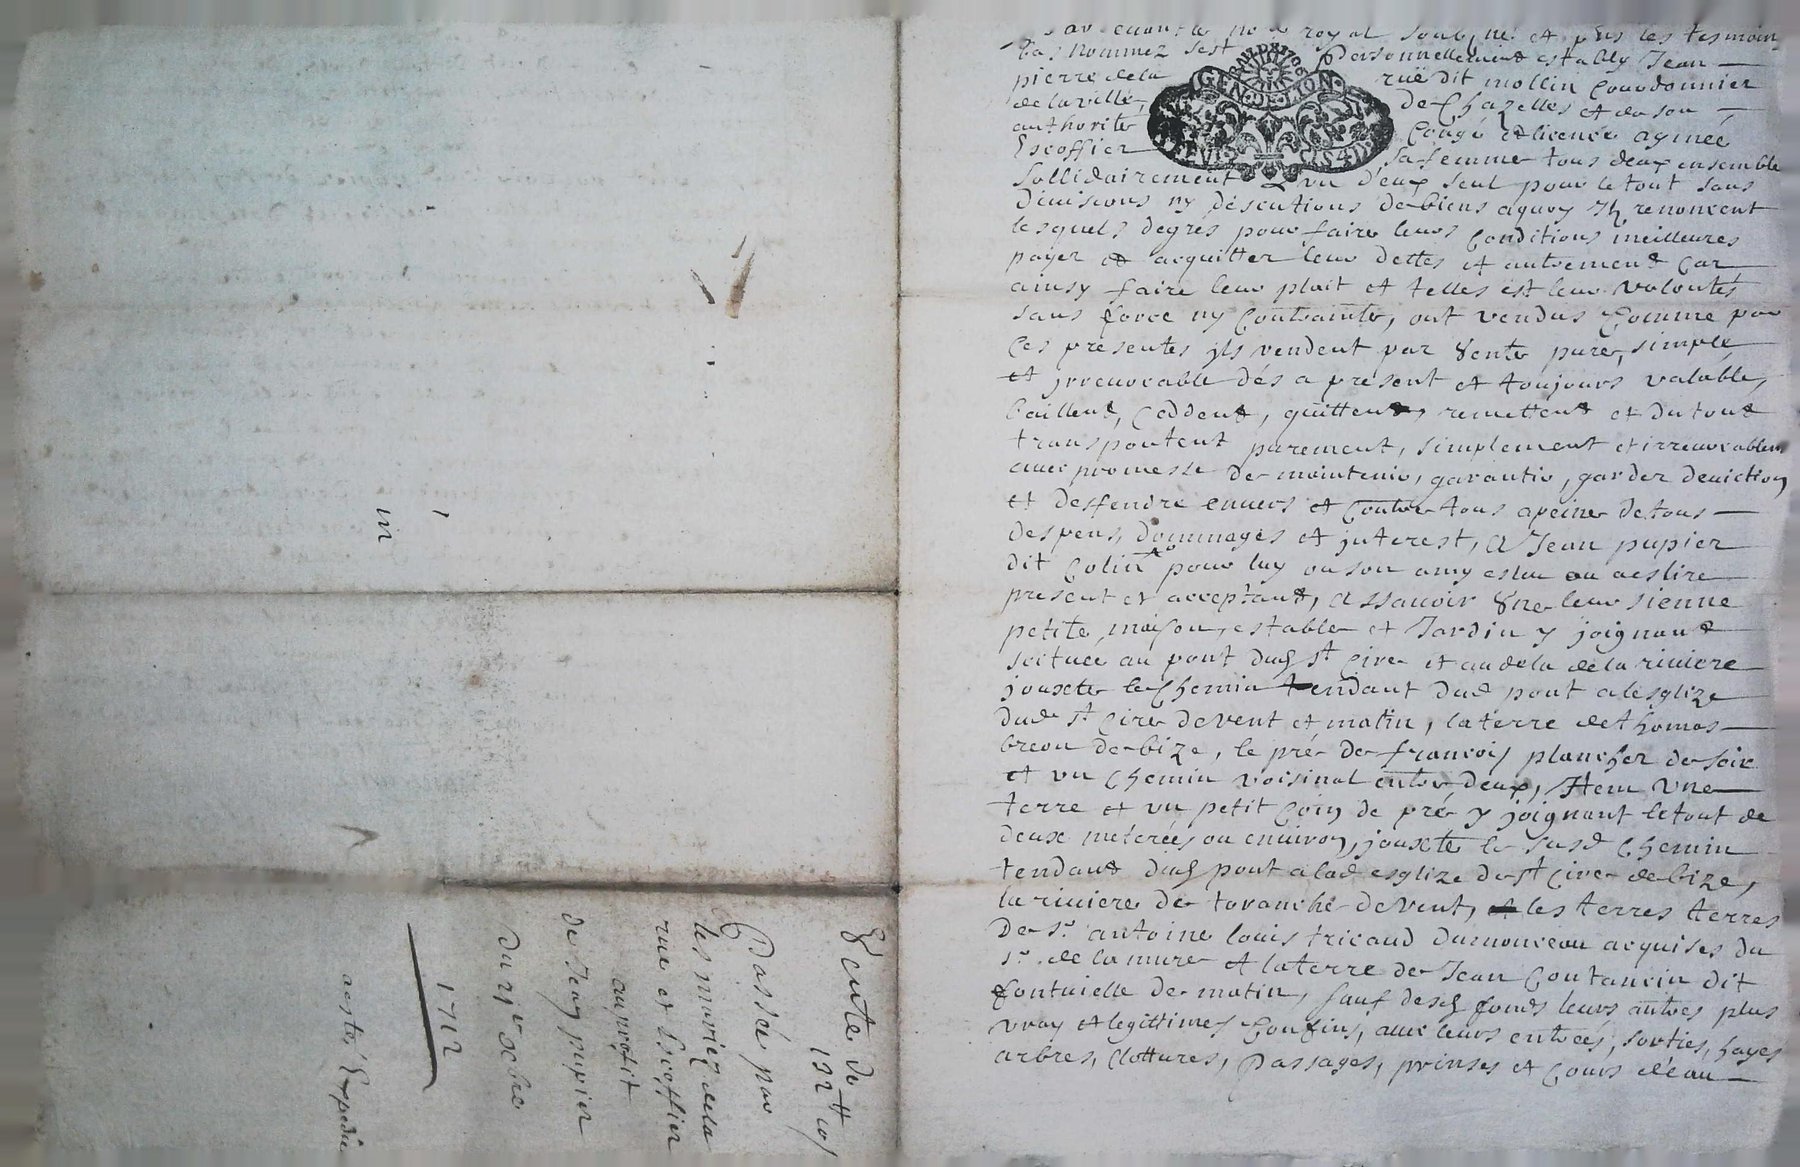 Par devant le no.re royal soub.né et p.ns les tesmoin
bas nommez sest personnellement estably Jean
pierre dela rüe dit mollin Courdonnier
de la ville de Chazelles et de son
authorité Congé et licence agmeé
Escoffier sa femme tous deux ensemble
Sollidairement L'un d'eux seul pour le tout sans
Divisions ny discutions de biens aquoy Ils renoncent
lesquels degrés pour faire leurs Conditions meilleures
payer et acquitter leur dettes et autrement Car
ainsy faire leur plait et telles est leur volontés
sans force ny Contrainte, ont vendus Comme par
Ces presentes ils vendent par Vente pure, simple
et irrevocable dés a présent et toujours valable,
baillent, Ceddent, quittent, remettent et du tout
transportent purement, simplement et irrevocablem
avec promesse de maintenir, garantir, garder deviction
et desfendre envers et Contre tous apeine de tous
despens, dommages et interest, A Jean pupier
dit Colin pour luy ou son amy eslu ou aeslire
present et acceptant, Assavoir Une leur sienne
petite maison, estable et Jardin y joignant
scituée au pont dud. St Cire et au dela de la riviere
jouxte le Chemin tendant dud pont alesglize
dud. St Cire de vent et matin, la terre de thomas
breon de bize, le pré de francois plancher de soir
et un Chemin voisinal entre deux, Item Une
terre et un petit Coin de pré y joignant le tout de
deux meterées ou environ, jouxte le susd Chemin
tendant dud. pont alad esglize de St Cire de bize,
la riviere de toranche de vent, et les terres terres
De Sr. antoine louis tricaud dumonceau acquises du
Sr. de la mure et la terre de Jean Coutancin dit
fontvielle de matin, sauf desd. fonds leurs autres plus
vray et legittimes Confins, avec leurs entrées, sorties, hayes
arbres, Clottures, Passages, prinses et Cours d'éau
in
Vente de
132 tt 10 s
Passée par
les mariez dela
rue et Escoffier
au profit
de Jean pupier
du 9bre
1712
acoste Expedié
GEN. DE LION